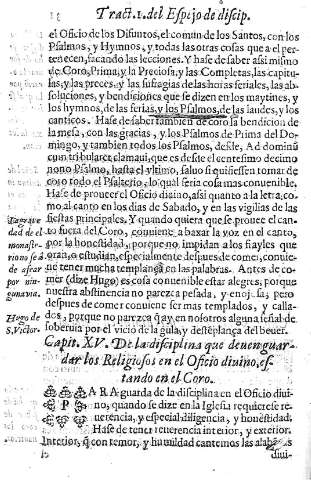 Tract. 1. del Espejo de discip.
el Oficio de los Difuntos, el comun de los Santos, con los
Psalmos, y Hymnos, y todas las otras cosas que a el per
tenecen, sacando las lecciones. Y hase de saber assi mismo
de Coro, Prima, y la Preciosa, y las Completas, las capitu-
las, y las preces, y las sufragias de las horas feriales, las ab-
soluciones, y bendiciones que se dizen en los maytines, y
los hymnos, de las ferias, y los Psalmos, de las laudes, y los
canticos. Hase de saber tambien de coro la bendicion de
la mesa, con las gracias, y los Psalmos de Prima del Do-
mingo, y tambien todos los Psalmos, desde, Ad dominũ
cum tribularer clamaui, que es desde el centesimo decimo
nono Psalmo, hasta el vltimo, saluo si quisiessen tomar de
coro todo el Psalterio, lo qual seria cosa mas conuenible.
Hase de proueer el Oficio diuino, assi quanto a la letra, co-
mo al canto en los dias de Sabado, y en las vigilias de las
fiestas principales. Y quando quiera que se prouee el can-
to fuera del Coro, conuiene a baxar la voz en el canto,
por la honestidad, porque no impidan a los frayles que
oran, o estudian, especialmente despues de comer, conuie-
ne tener mucha templança en las palabras. Antes de co-
mer (dize Hugo) es cosa conuenible estar alegres, porque
nuestra abstinencia no parezca pesada, y enojosa, pero
despues de comer conuiene ser mas templados, y calla-
dos, porque no parezca q̃ ay en nosotros alguna señal de
soberuia por el vicio de la gula, y destẽplança del beuer.
La graue
dad de el
monaste-
rio no se à
de afear
por nin-
guna via.
Hugo de
S. Victor.
Capit. XV. De la disciplina que deuen guar-
dar los Religiosos en el Oficio diuino, es-
tando en el Coro.
PARA guarda de la disciplina en el Oficio diui-
no, quando se dize en la Iglesia requierese re-
uerencia, y especial diligencia, y honestidad.
Hase de tener reuerencia interior, y exterior.
Interior, q̃ con temor, y humildad cantemos las alabãças
diui-